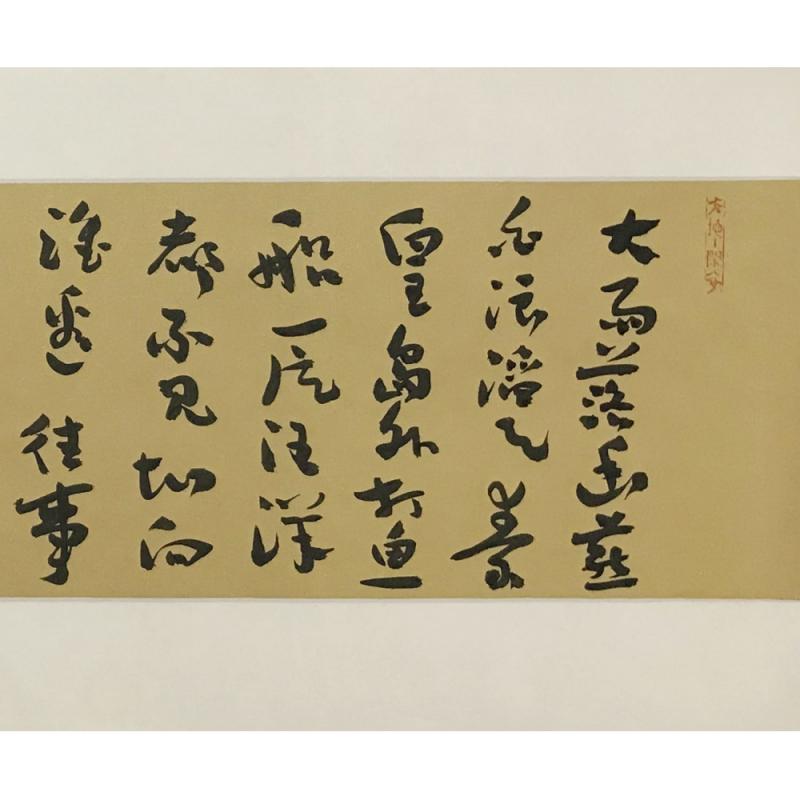 大雨落幽燕
白浪滔天秦
皇岛外打鱼
船一片汪洋
都不见知向
谁边往事